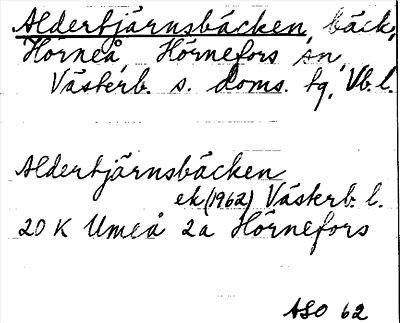 Aldertjärnsbäcken, bäck,
Horneå, Hörnefors sn,
Västerb. s. doms. tg, Vb. l.
Aldertjärnsbäcken
ek (1962) Västerb. l.
20 K Umeå 2a Hörnefors
ASO 62